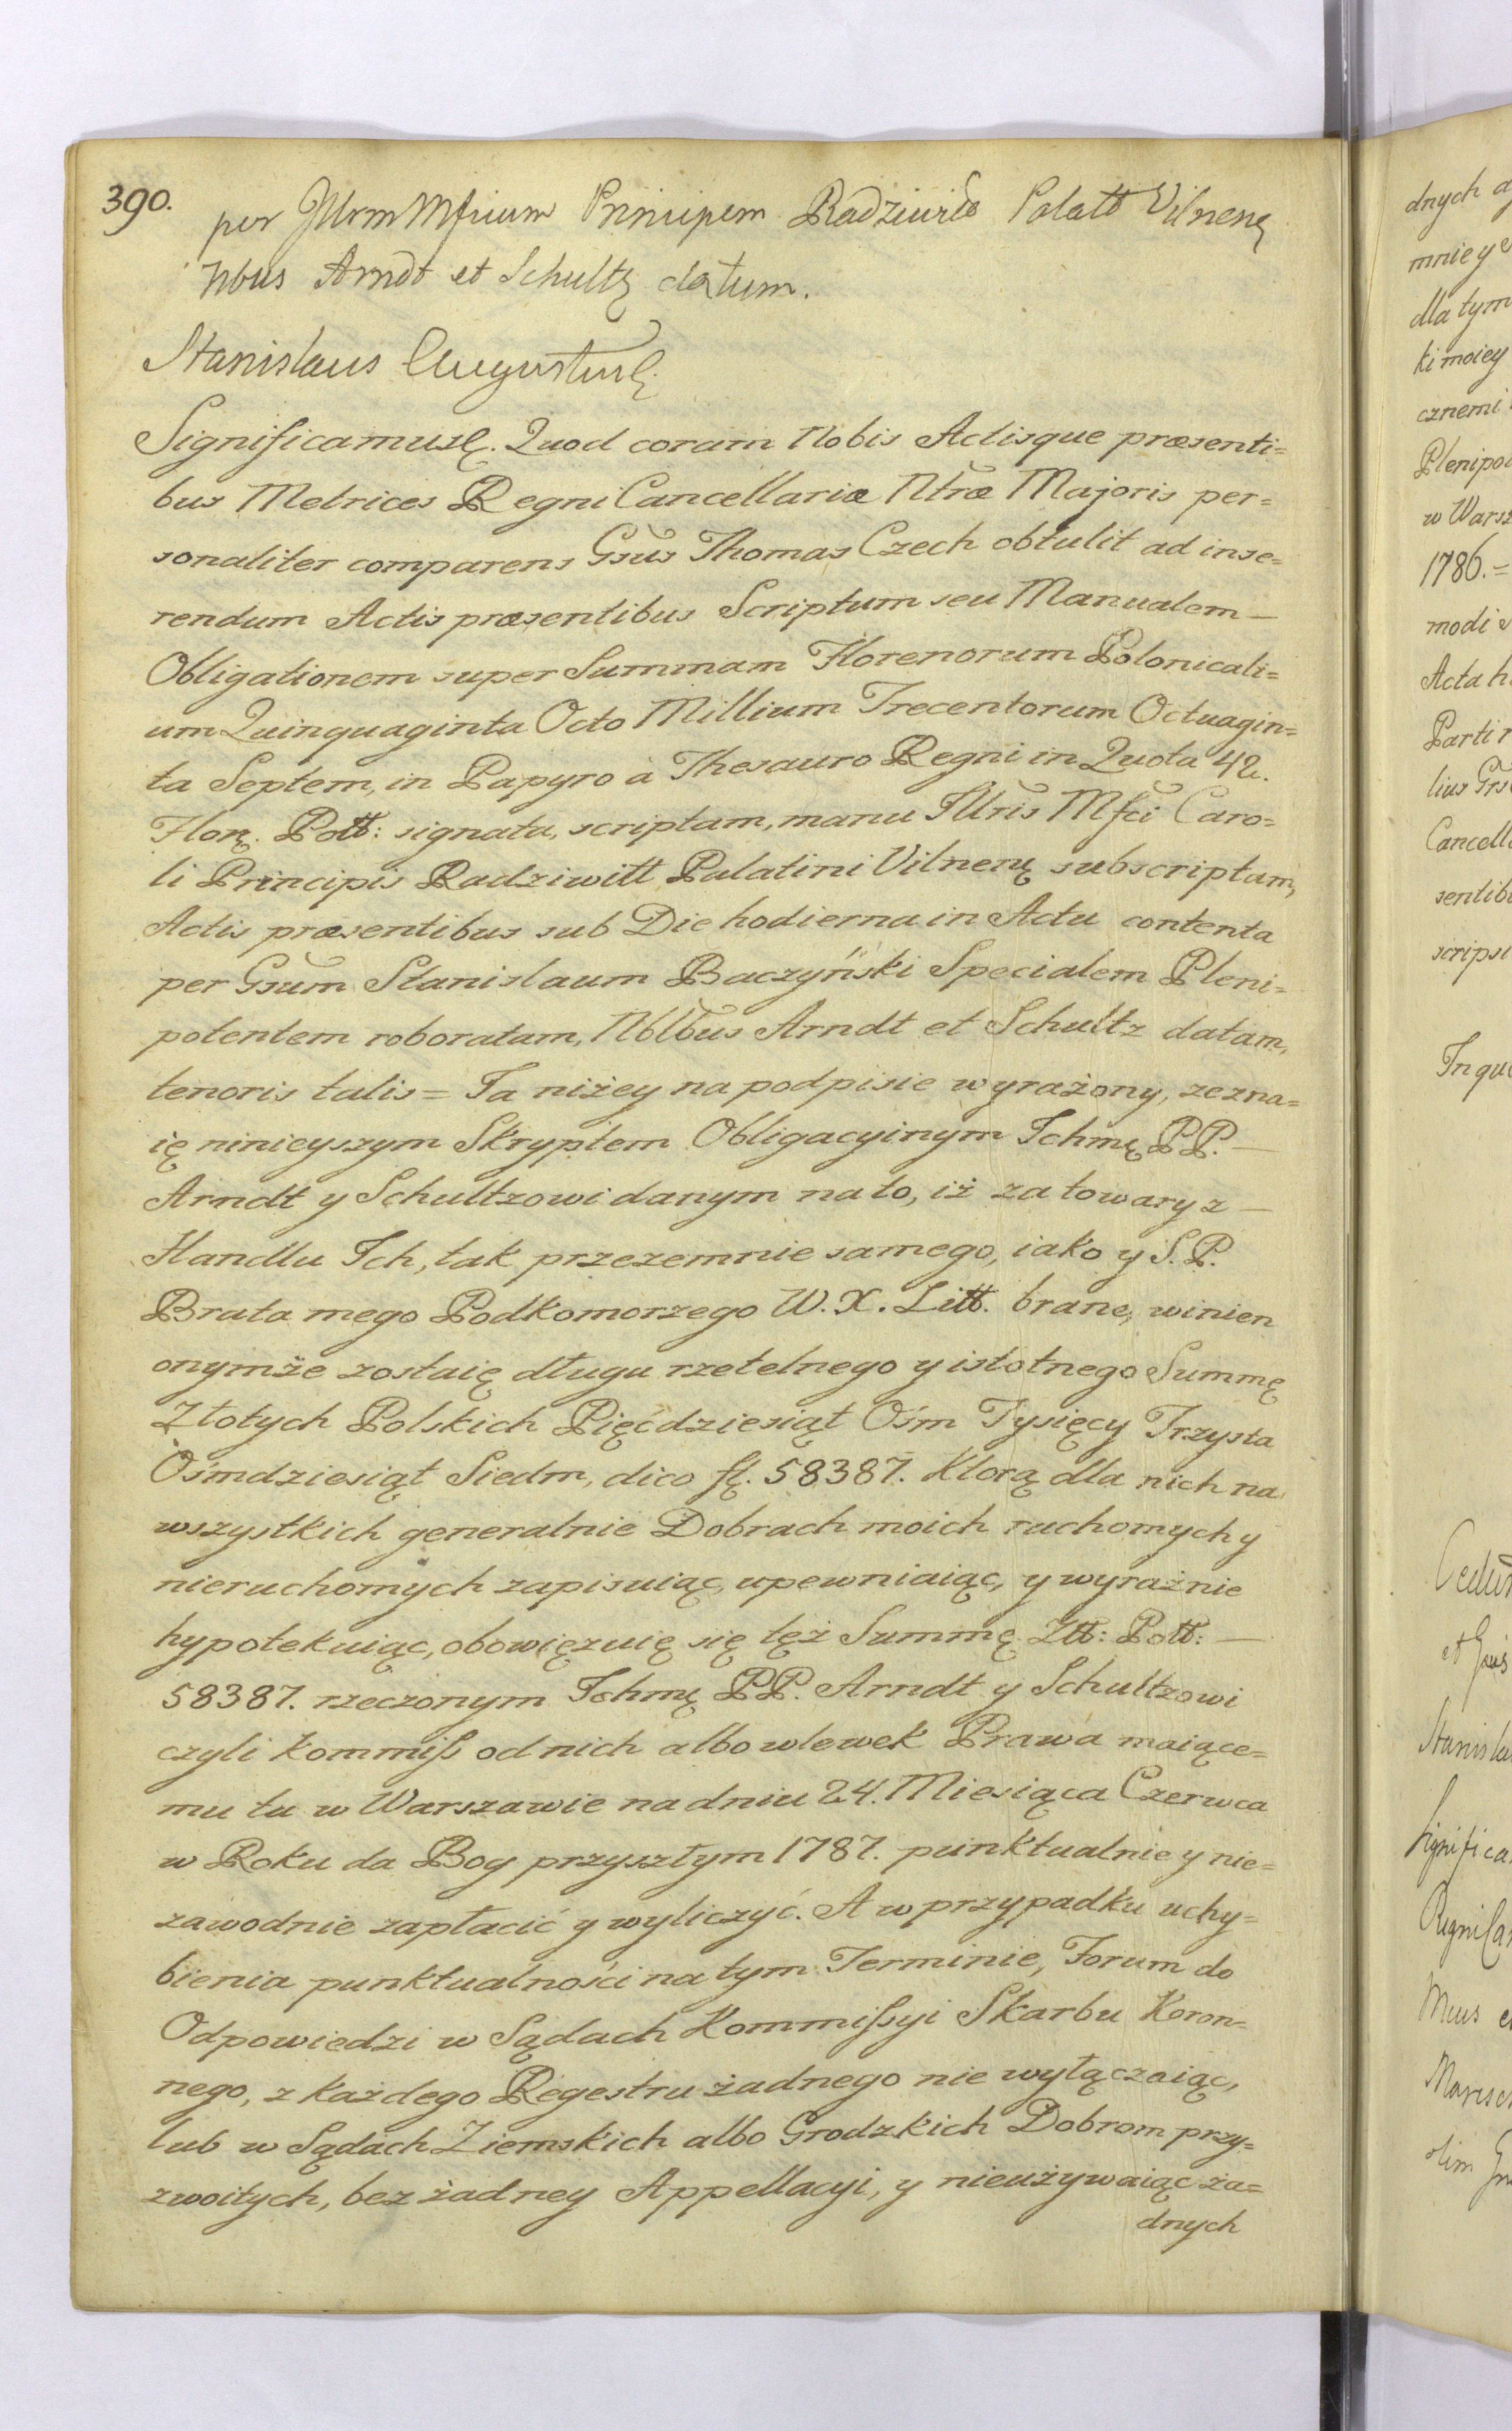 390.
per Jllrm Mficum Principem Radziwiłł Palatt Vilnenȩ
Nbus Arndt et Schultz datum.
Stanislaus Augustusȩ.
Significamusȩ. Quod coram Nobis Actisque præsenti=
bus Metrices Regni Cancellariæ Ntræ Majoris per=
sonaliter comparens Gsus Thomas Czech obtulit ad inse=
rendum Actis præsentibus Scriptum seu Manualem —
Obligationem super Summam Florenorum Polonicali=
um Quinquaginta Octo Millium Trecentorum Octuagin=
ta Septem, in Papyro à Thesauro Regni in Quota 42.
Florȩ. Poll: signata, scriptam, manu Jllris Mfci Caro=
li Principis Radziwiłł Palatini Vilnenȩ subscriptam,
Actis præsentibus sub Die hodierna in Actu contenta
per Gsum Stanislaum Baczyński Specialem Pleni=
potentem roboratam, Nblbus Arndt et Schultz datam,
tenoris talis = Ja niżey na podpisie wyrażony, zezna=
ię ninieyszym Skryptem Obligacyinym Jchmę PP. —
Arndt y Schultzowi danym na to, iż za towary z —
Handlu Jch, tak przezemnie samego, iako y S. P.
Brata mego Podkomorzego W. X. Litt. brane, winien
onymże zostaię długu rzetelnego y istotnego Summę
Złotych Polskich Pięćdziesiąt Ośm Tysięcy Trzysta
Ośmdziesiąt Siedm, dico fl. 58387. Którą dla nich na
wszystkich generalnie Dobrach moich ruchomych y
nieruchomych zapisuiąc, upewniaiąc, y wyraźnie
hypotekuiąc, obowięzuię się tęż Summę Złł: Poll: —
58387. rzeczonym Jchmę PP. Arndt y Schultzowi
czyli kommiss od nich albo wlewek Prawa maiące=
mu tu w Warszawie na dniu 24. Miesiąca Czerwca
w Roku da Bog przyszłym 1787. punktualnie y nie=
zawodnie zapłacić y wyliczyć. A w przypadku uchy=
bienia punktualności na tym Terminie, Forum do
Odpowiedzi w Sądach Kommissyi Skarbu Koron=
nego, z każdego Regestru żadnego nie wyłączaiąc,
lub w Sądach Ziemskich albo Grodzkich Dobrom przy=
zwoitych, bez żadney Appellacyi, y nieużywaiąc ża=
dnych
dnych
mnie y
dla tym
ki moiey
cznemi
Plenipo
w Warsz
1786. =
modi
Acta h
Parti
lius Grs
Cancell
sentib
scripsi
In qu
et
Stanisla
Significa
Regni Ca
Meus
Maresc
olim